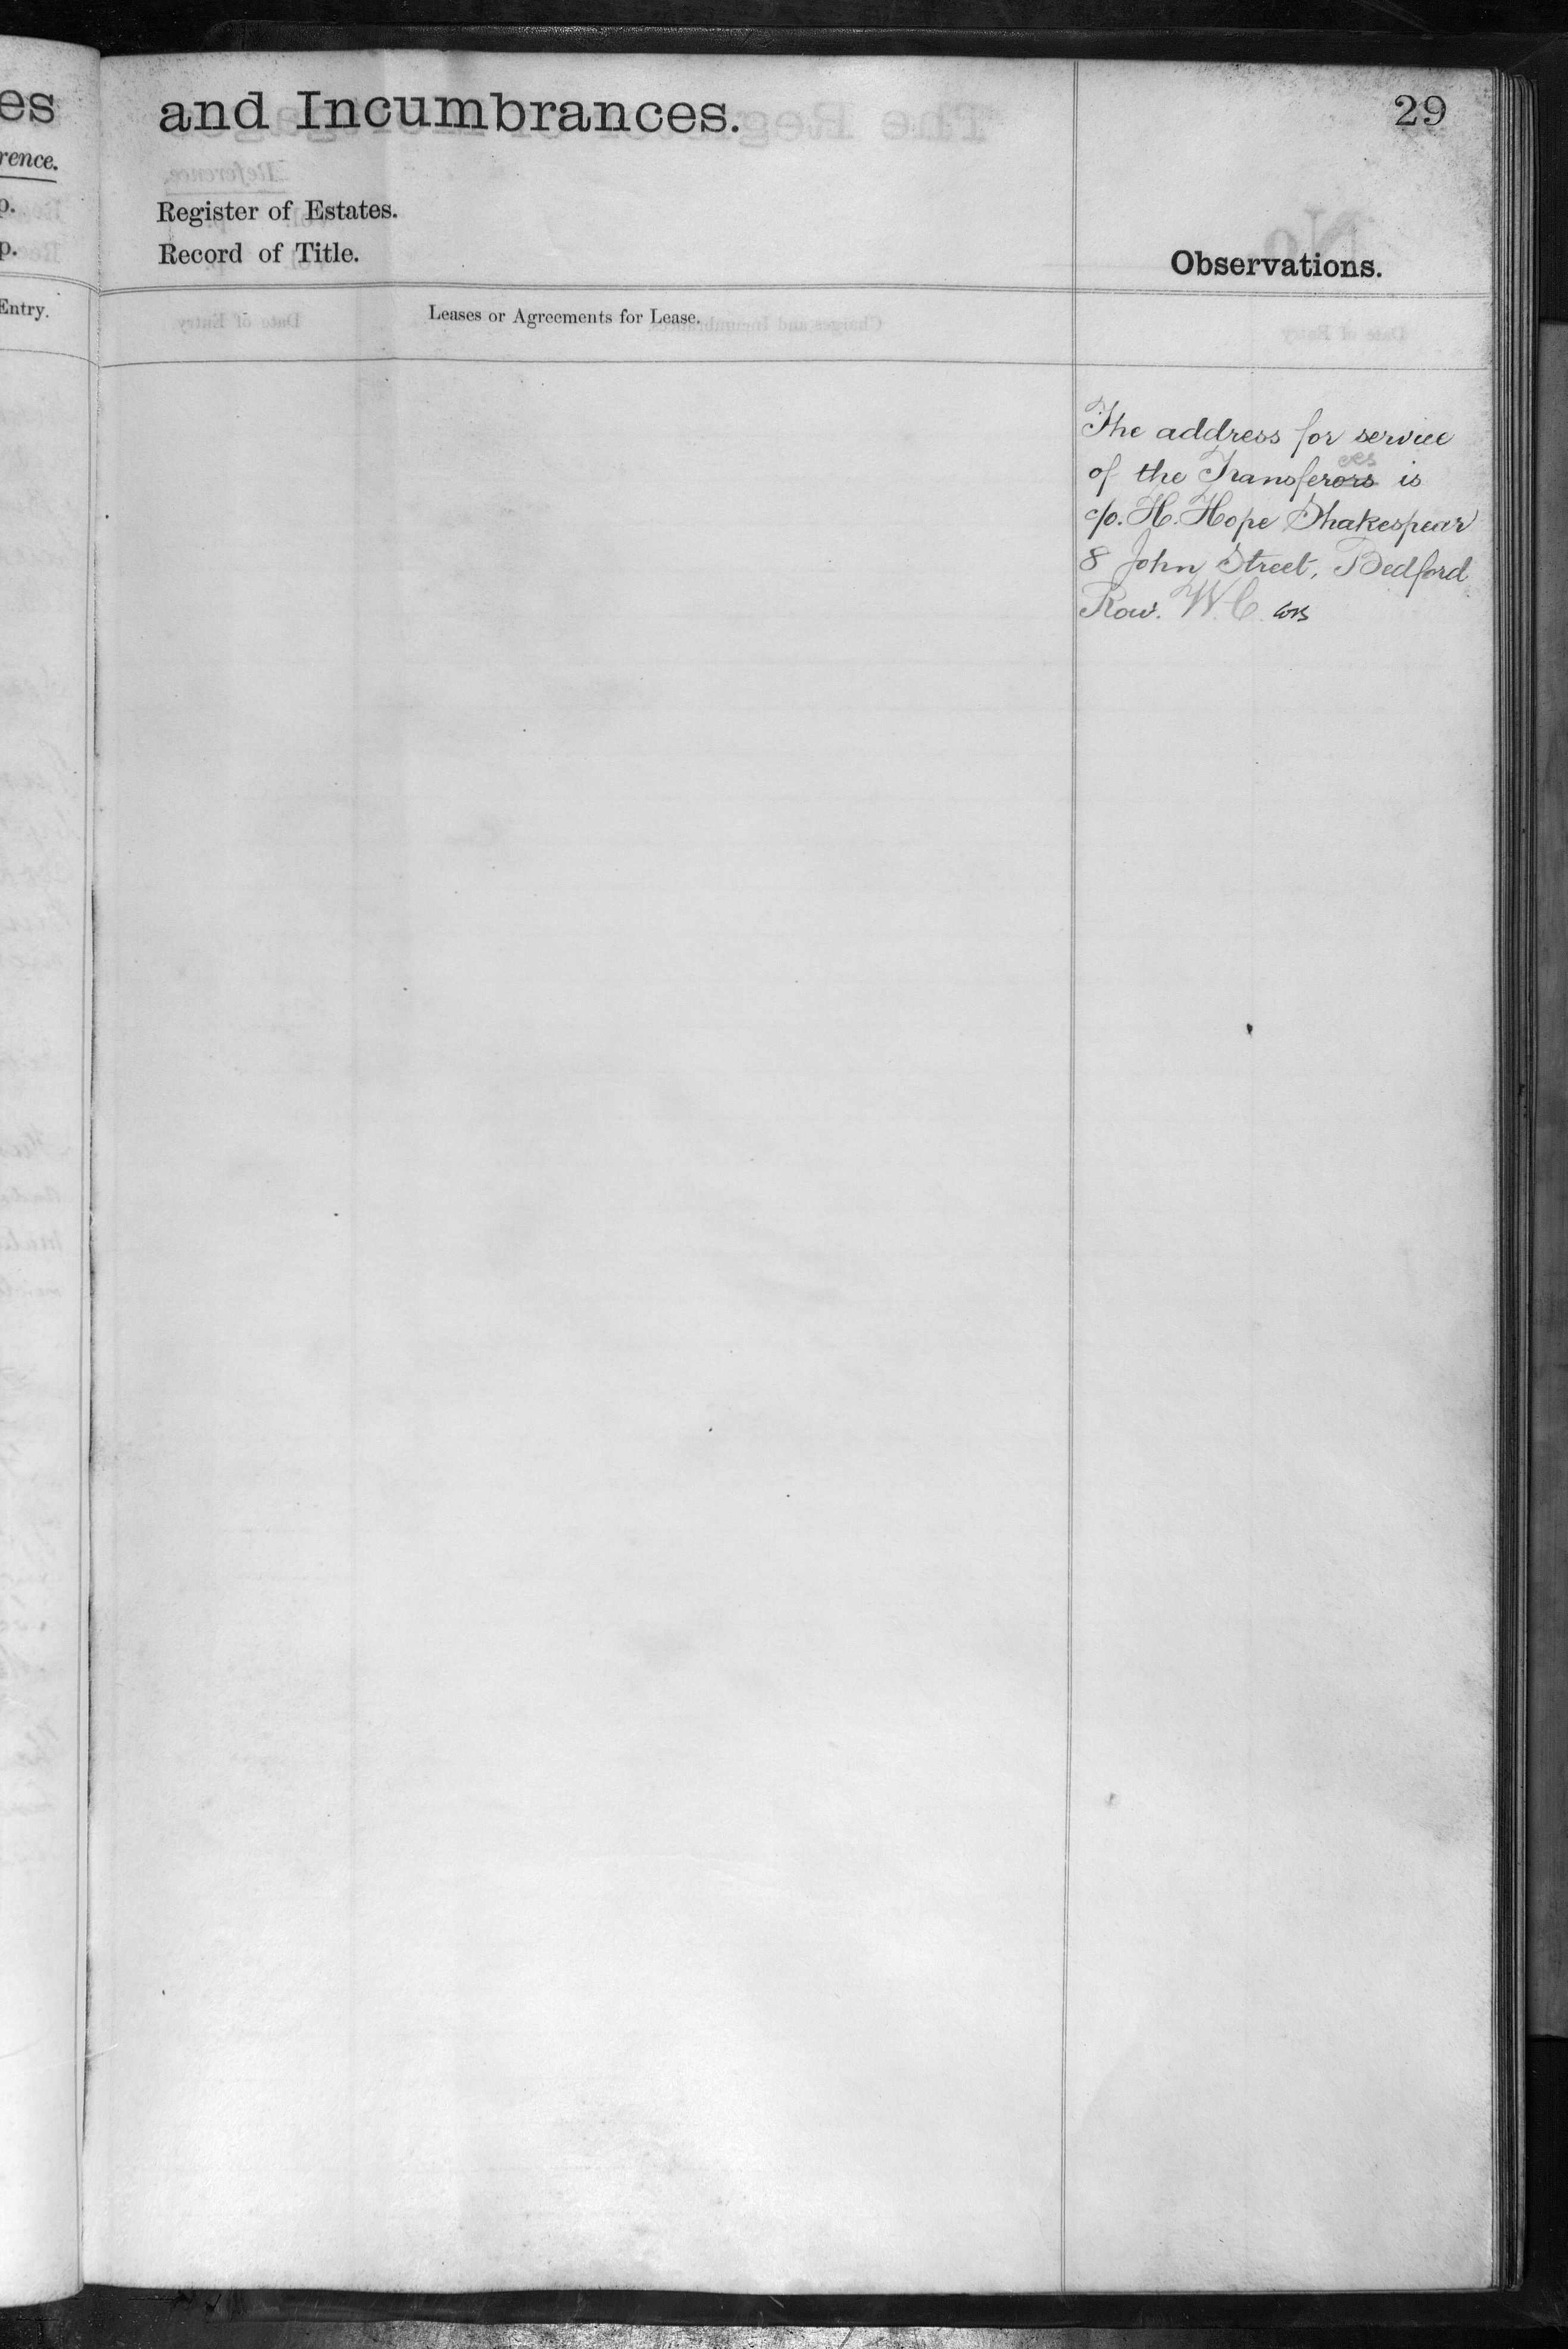 es
rence.
p.
p.
Entry.
and Incumbrances.
29
Register of Estates.
Record of Title.
Observations.
Leases or Agreements for Lease.
The address for service
ees
of the Transferors is
c/o. H. Hope Shakespear
8 John Street, Bedford
Row. W.C.